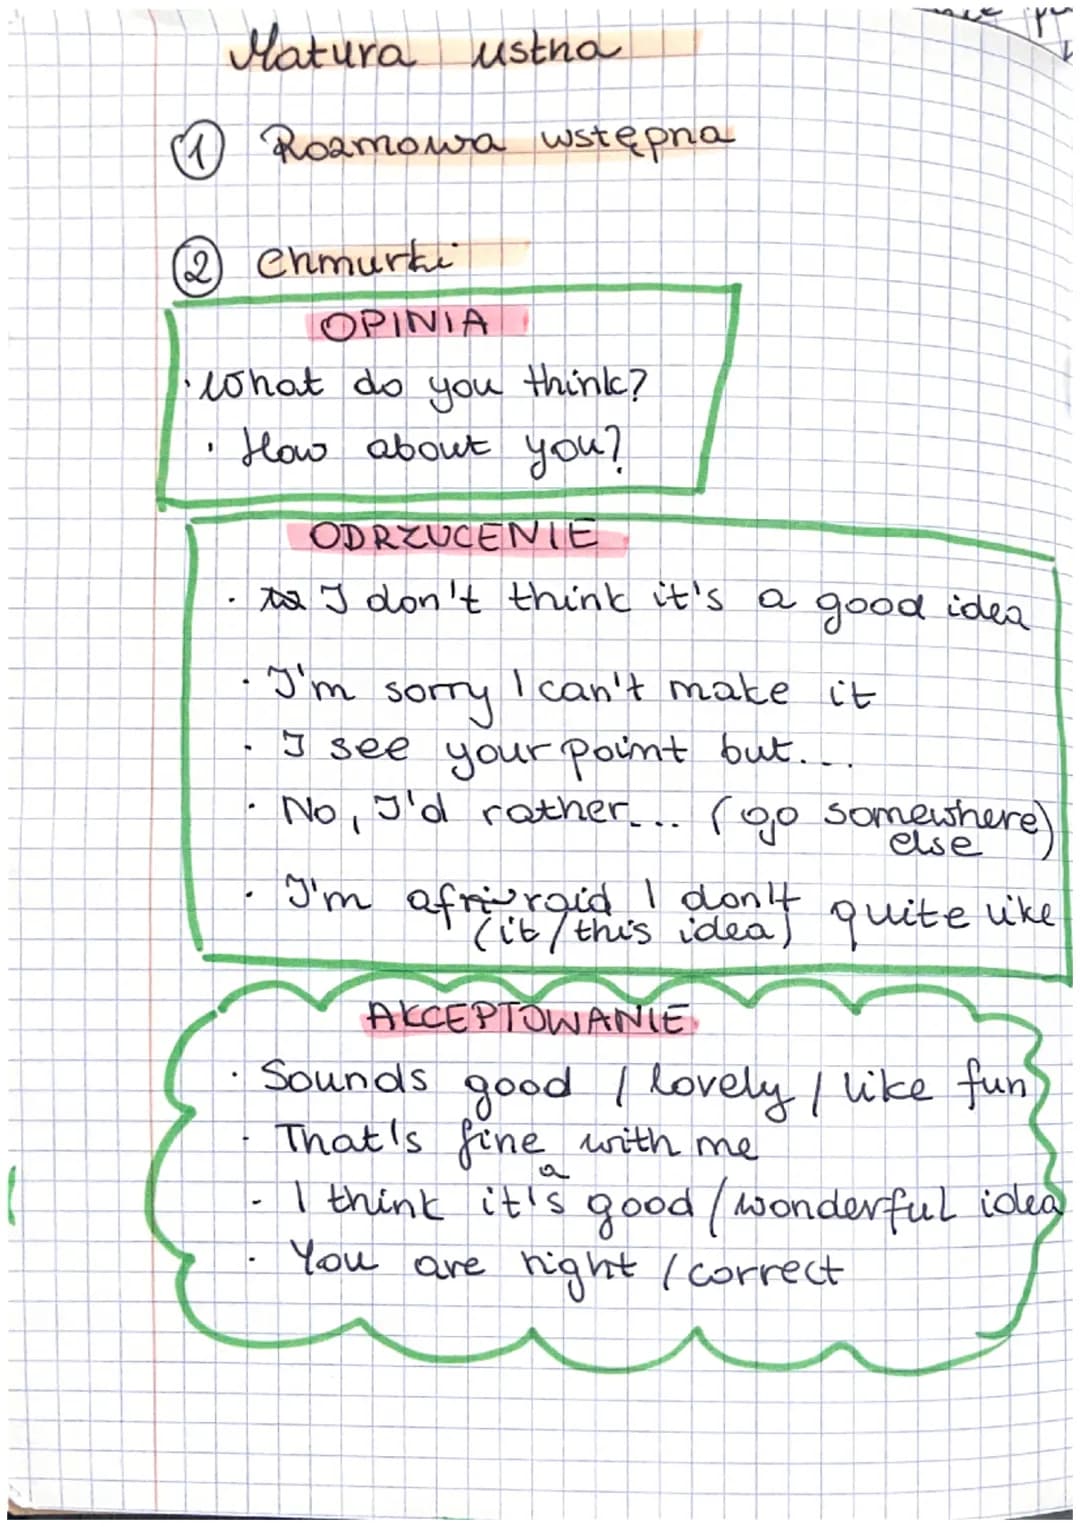 Matura ustna
① Rozmowa wstępna
② Chmurki
OPINIA
· What do you think?
· How about you?
ODRZUCENIE
· I don't think it's a good idea
· I'm sorry I can't make it
· I see your point but...
· No, I'd rather... (go somewhere)
else
· I'm afraid I don't quite like
(it/this idea)
AKCEPTOWANIE
· Sounds good / lovely / like fun
· That's fine with me
- I think it's a good/wonderful idea
· You are right / correct